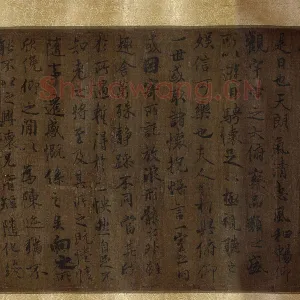 是日也天朗氣清惠風和暢仰
觀宇宙之大俯察品類之盛
所以遊目騁懷足以極視聽之
娛信可樂也夫人之相與俯仰
一世或取諸懷抱悟言一室之內
或因寄所託放浪形骸之外雖
趣舍萬殊靜躁不同當其欣
於所遇暫得於己快然自足不
知老之將至及其所之既倦情
隨事遷感慨係之矣向之所
欣俛仰之間以為陳迹猶不
能不以之興懷況脩短隨化終